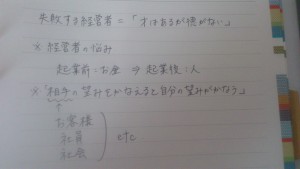 失敗する経営者=「才はあるが徳がない」
※経営者の悩み
起業前:お金 ⇒ 起業後:人
※「相手の望みをかなえると自分の望みがかなう」
↑
お客様
社員
社会
etc